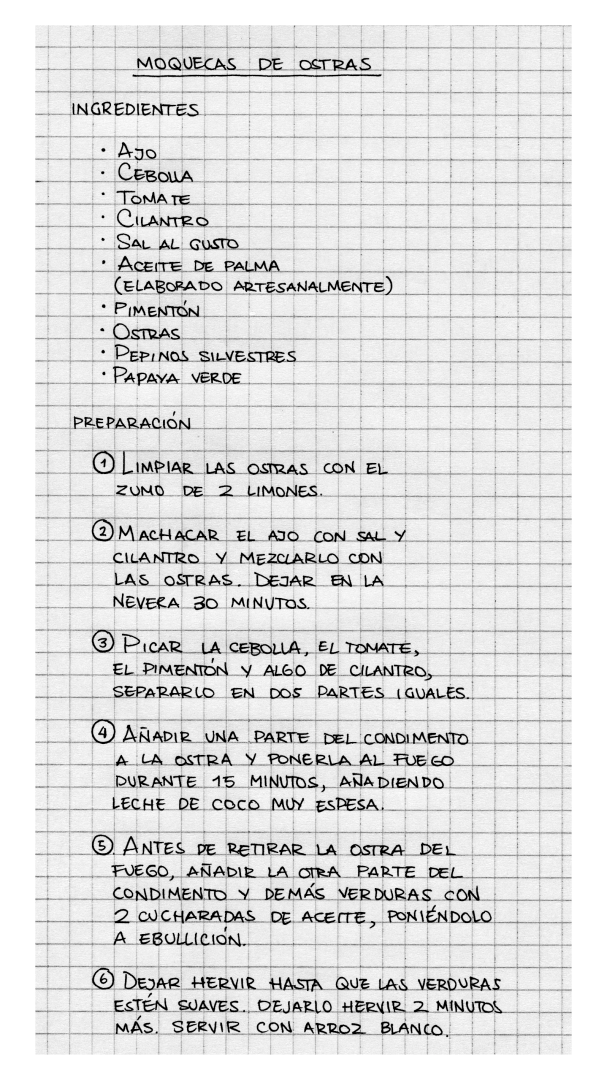 MOQUECAS DE OSTRAS
INGREDIENTES
· AJO
· CEBOLLA
· TOMATE
· CILANTRO
· SAL AL GUSTO
· ACEITE DE PALMA
(ELABORADO ARTESANALMENTE)
· PIMENTÓN
· OSTRAS
· PEPINOS SILVESTRES
· PAPAYA VERDE
PREPARACIÓN
① LIMPIAR LAS OSTRAS CON EL
ZUMO DE 2 LIMONES.
② MACHACAR EL AJO CON SAL Y
CILANTRO Y MEZCLARLO CON
LAS OSTRAS. DEJAR EN LA
NEVERA 30 MINUTOS.
③ PICAR LA CEBOLLA, EL TOMATE,
EL PIMENTÓN Y ALGO DE CILANTRO,
SEPARARLO EN DOS PARTES IGUALES.
④ AÑADIR UNA PARTE DEL CONDIMENTO
A LA OSTRA Y PONERLA AL FUEGO
DURANTE 15 MINUTOS, AÑADIENDO
LECHE DE COCO MUY ESPESA.
⑤ ANTES DE RETIRAR LA OSTRA DEL
FUEGO, AÑADIR LA OTRA PARTE DEL
CONDIMENTO Y DEMÁS VERDURAS CON
2 CUCHARADAS DE ACEITE, PONIÉNDOLO
A EBULLICIÓN.
⑥ DEJAR HERVIR HASTA QUE LAS VERDURAS
ESTÉN SUAVES. DEJARLO HERVIR 2 MINUTOS
MÁS. SERVIR CON ARROZ BLANCO.